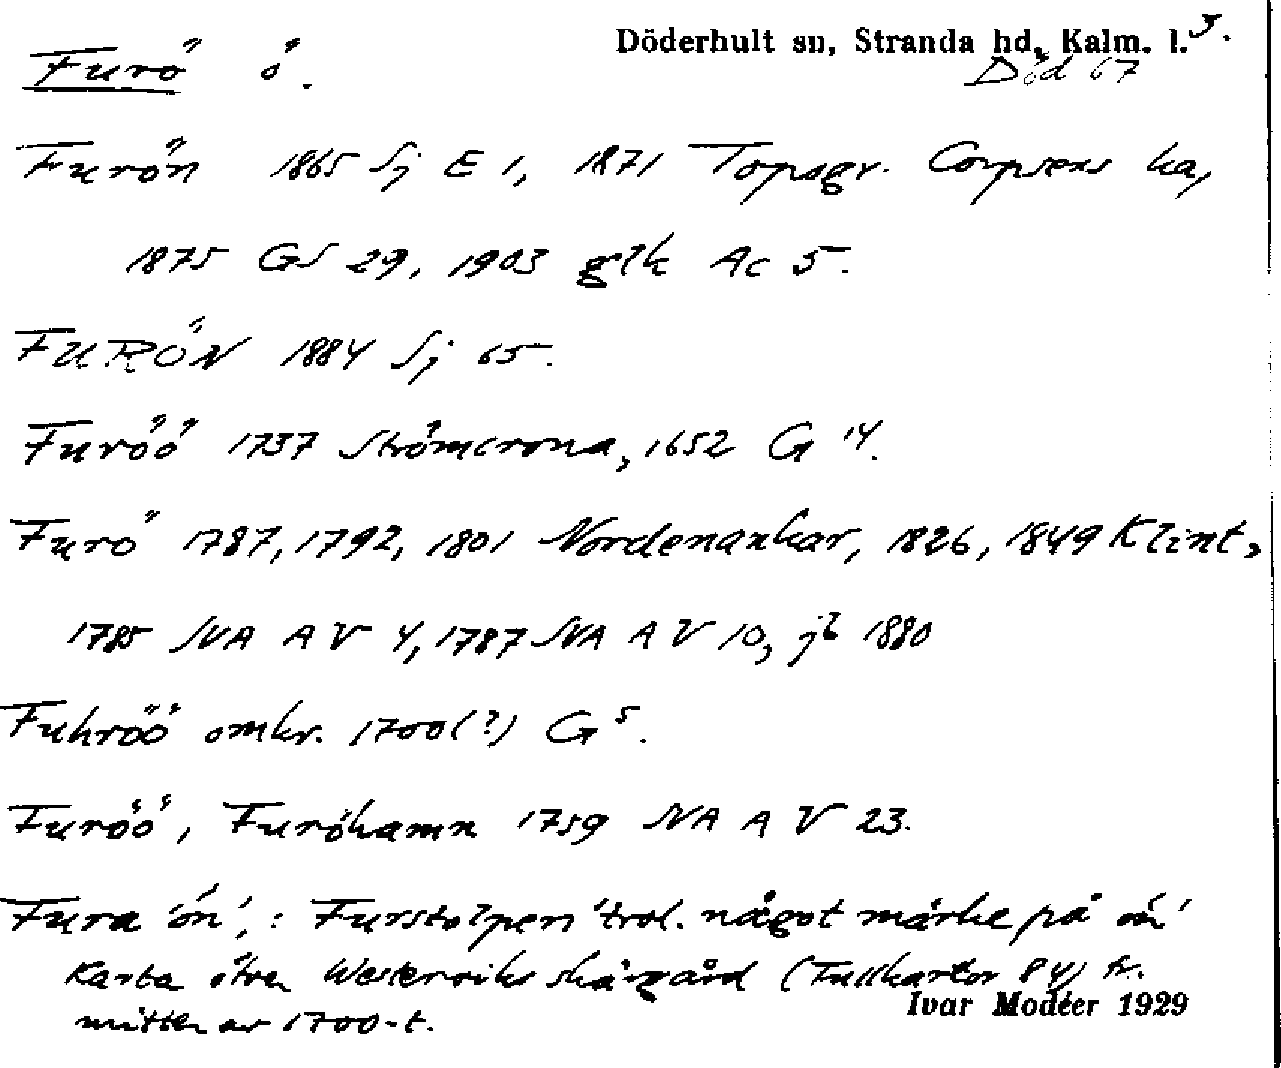 Döderhult sn, Stranda hd, Kalm. l. 3.
Furö ö.
Död 67
Furön 1865 Sj E 1, 1871 Topogr. Corpsens ka,
1875 GS 29, 1903 glk Ac 5.
FURÖN 1884 Sj 65.
Furöö 1737 Strömcrona, 1652 G 14.
Furö 1787, 1792, 1801 Nordenankar, 1826, 1849 Klint,
1785 SVA A V 4, 1787 SVA A V 10, jb 1880
Fuhröö omkr. 1700(?) G 5.
Furöö, Furöhamn 1759 SVA A V 23.
Fura 'ön', : Furstolpen 'trol. något märke på ön'
Karta öfver Westerviks skärgård (Tullkartor 84) fr.
mitten av 1700-t.
Ivar Modéer 1929